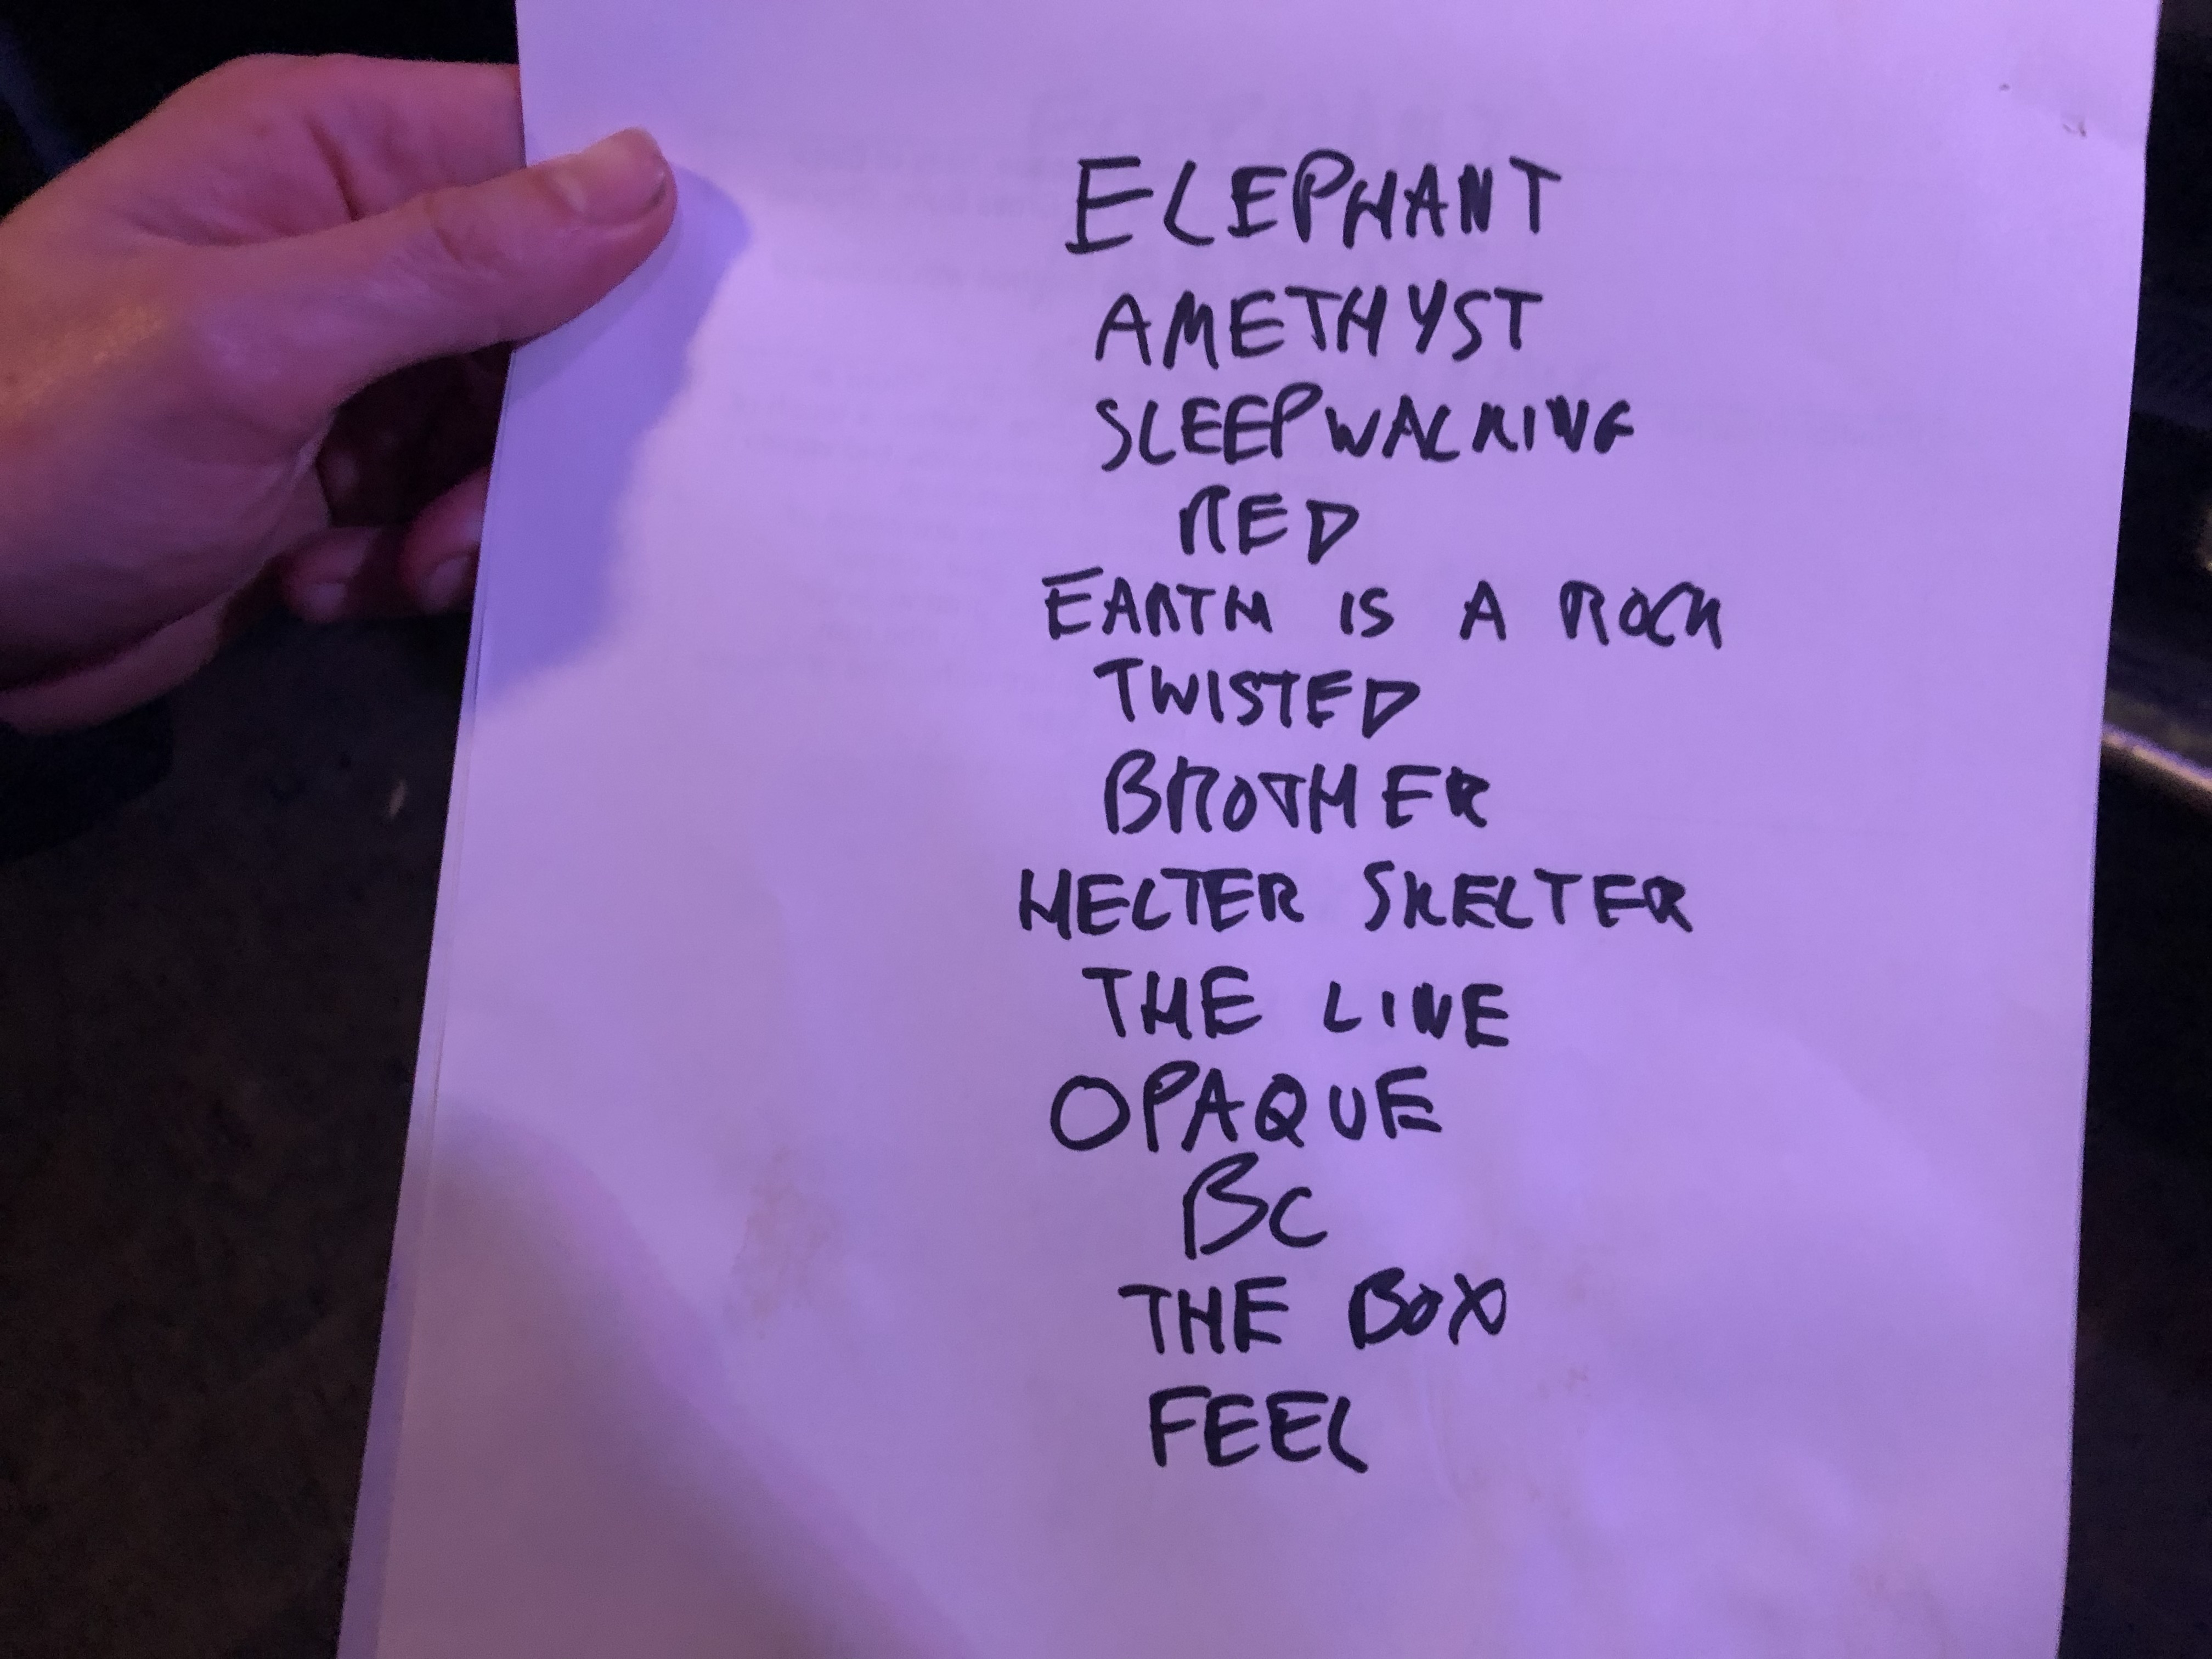 ELEPHANT
AMETHYST
SLEEPWALKING
RED
EARTH IS A ROCK
TWISTED
BROTHER
HELTER SKELTER
THE LINE
OPAQUE
BC
THE BOX
FEEL